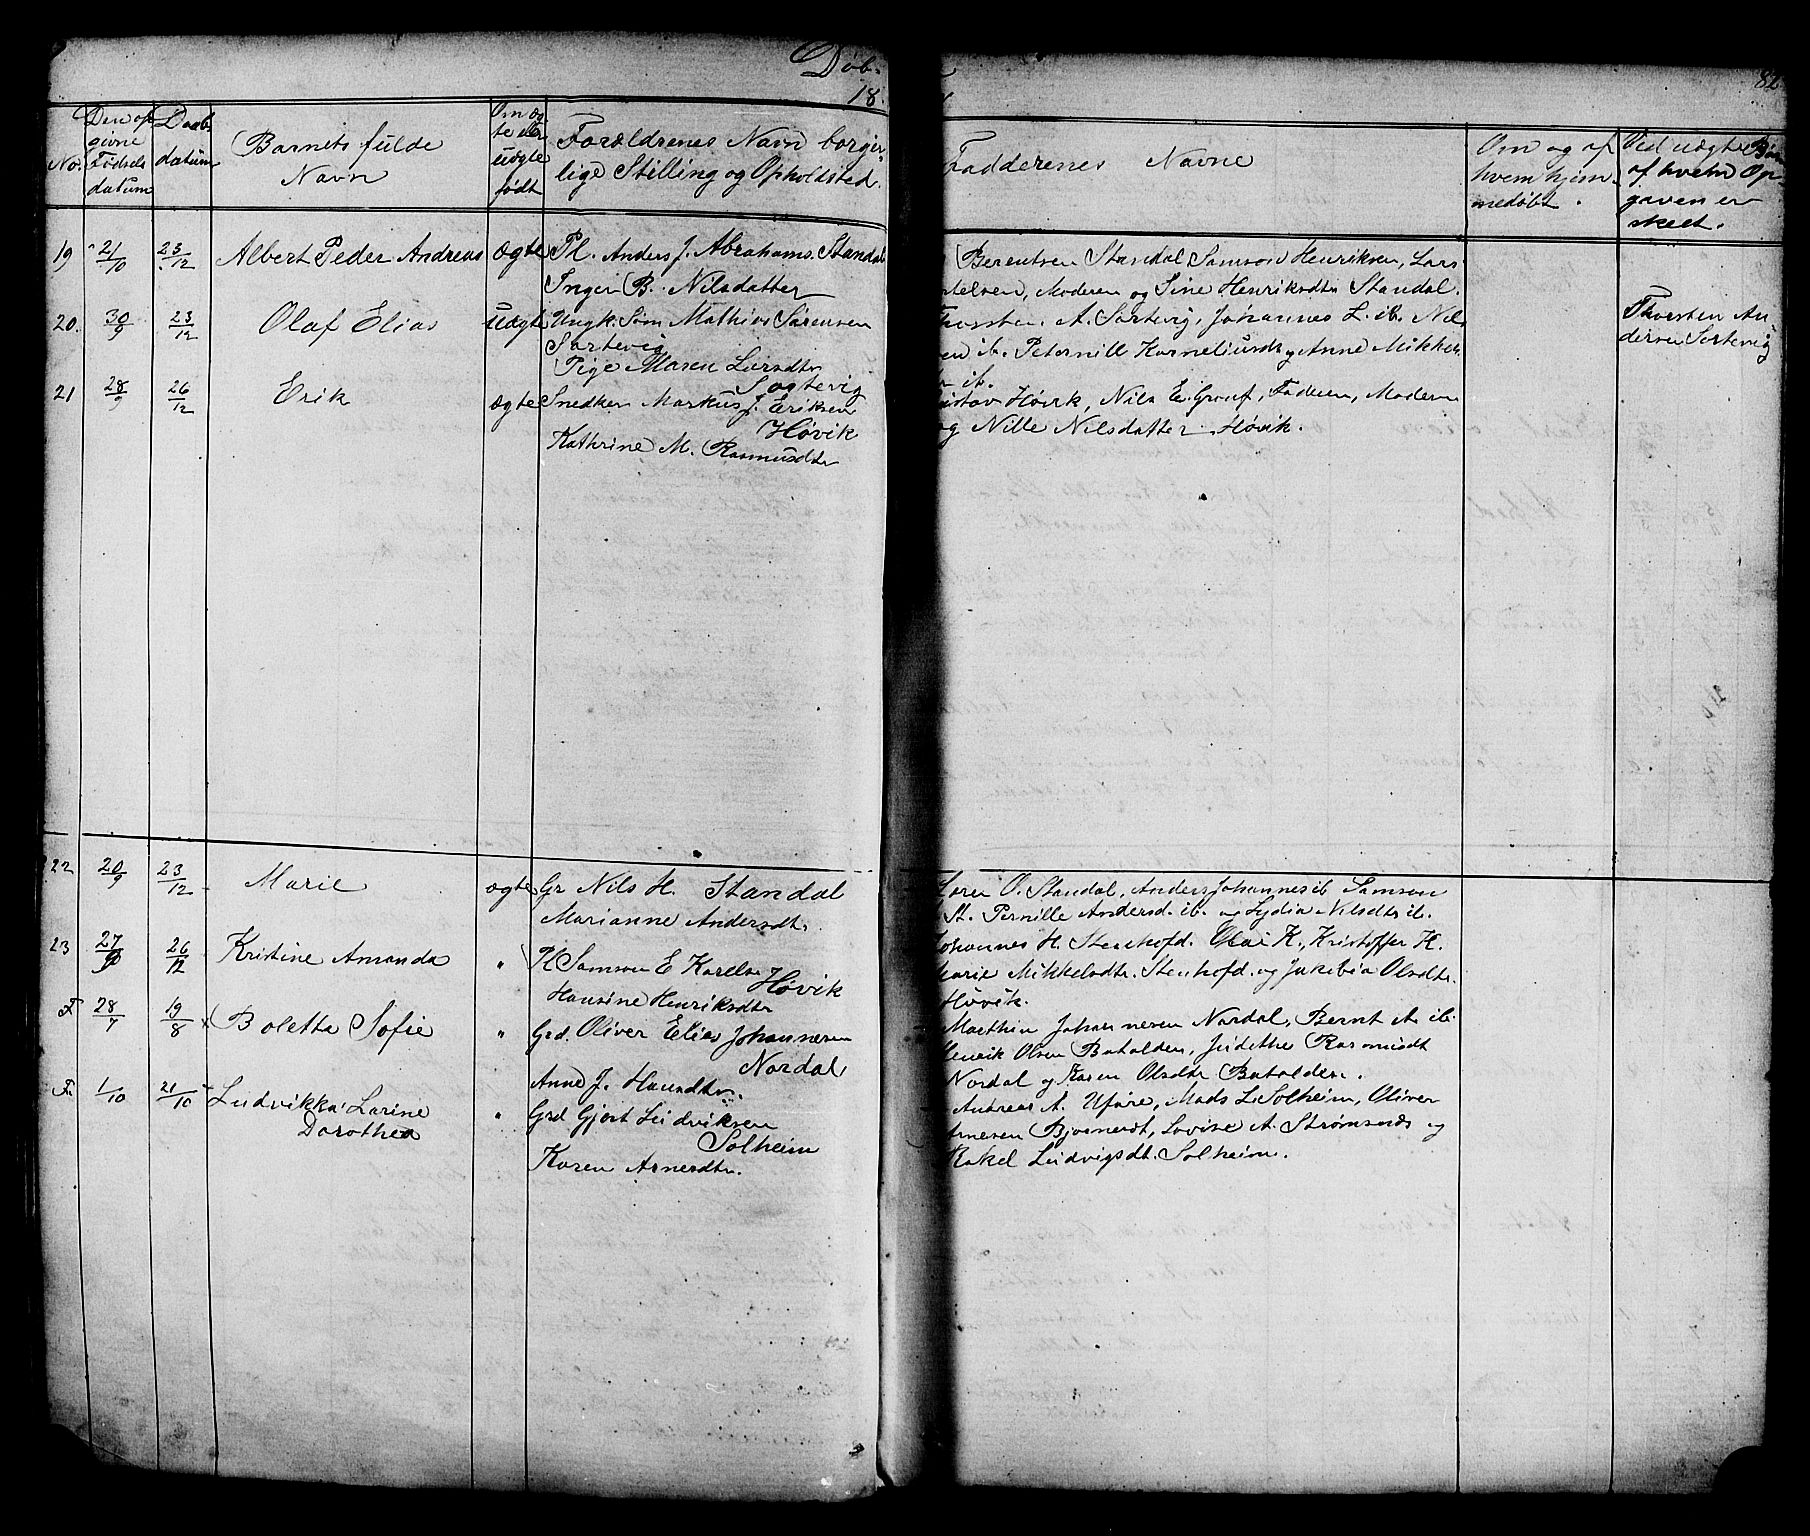 Døb-
18.
82
No.
Den op
givne
Fødsels
datum
Daabs
datum
Barnets fulde
Navn
Om æg
te eller
uægte
født
Forældrenes Navn borger
lige Stilling og Opholdsted.
Faddernes Navne
Om og af
hvem hjem
medøbt.
Ved uægte Børn
af hvem Op-
gaven er
skeet.
19 21/10 23/12 Albert Peder Andreas ægte Pl. Anders J. Abrahams. Standal
Inger B. Nilsdatter
Berentsen Standal Samson Henriksen, Lars
telsen, Moderen og Sine Henriksdtr Standal.
20. 30/9 23/12 Olaf Elias uægte Ungk. Søm Mathias Sørensen
Sørtevig
Pige Maren Larsdtr
Sørtevig
A. Sørtevig, Johannes L. ib. Nils
en ib. Peternill Korneliusdt og Anne Mikkels
ib.
Thorsten An
dersen Sortevig
21 28/9 26/12 Erik ægte Snedker Markus J. Eriksen
Høvik
Kathrine M. Rasmusdtr
ustav Høvik, Nils E. Grauf, Faderen, Moderen
og Nille Nilsdatter Høvik.
22 20/9 23/12 Marie ægte Gr Nils H. Standal
Marianne Andersdt.
Søren O. Standal, Anders Johannes ib Samson
St. Pernille Andersd. ib. og Lydia Nilsdtr ib.
23 27/9 26/12 Kristine Amanda " H Samson E Karels.
Høvik
Hansine Henriksdtr
Johannes H. Stenhofd. Olai K., Kristoffer K.
Marie Mikkelsdtr. Stenhofd. og Jakobia Olsdtr.
Høvik.
F 28/7 19/8 Boletta Sofie " Grd. Oliver Elias Johannesen
Nordal
Anne J. Hansdtr.
Mathin Johannesen Nordal, Bernt A. ib.
Henrik Olsen Batalden, Judithe Rasmusdt
Nordal og Karen Olsdtr Batalden.
F. 1/10 21/10 Ludvikka Larine
Dorothea
" Grd Gjert Ludviksen
Solheim
Karen Arnesdtr.
Andreas A. Uføre, Mads L Solheim, Oliver
Arnesen Bjørneset, Lovise A. Strømsnes og
Rakel Ludvigsdt. Solheim.